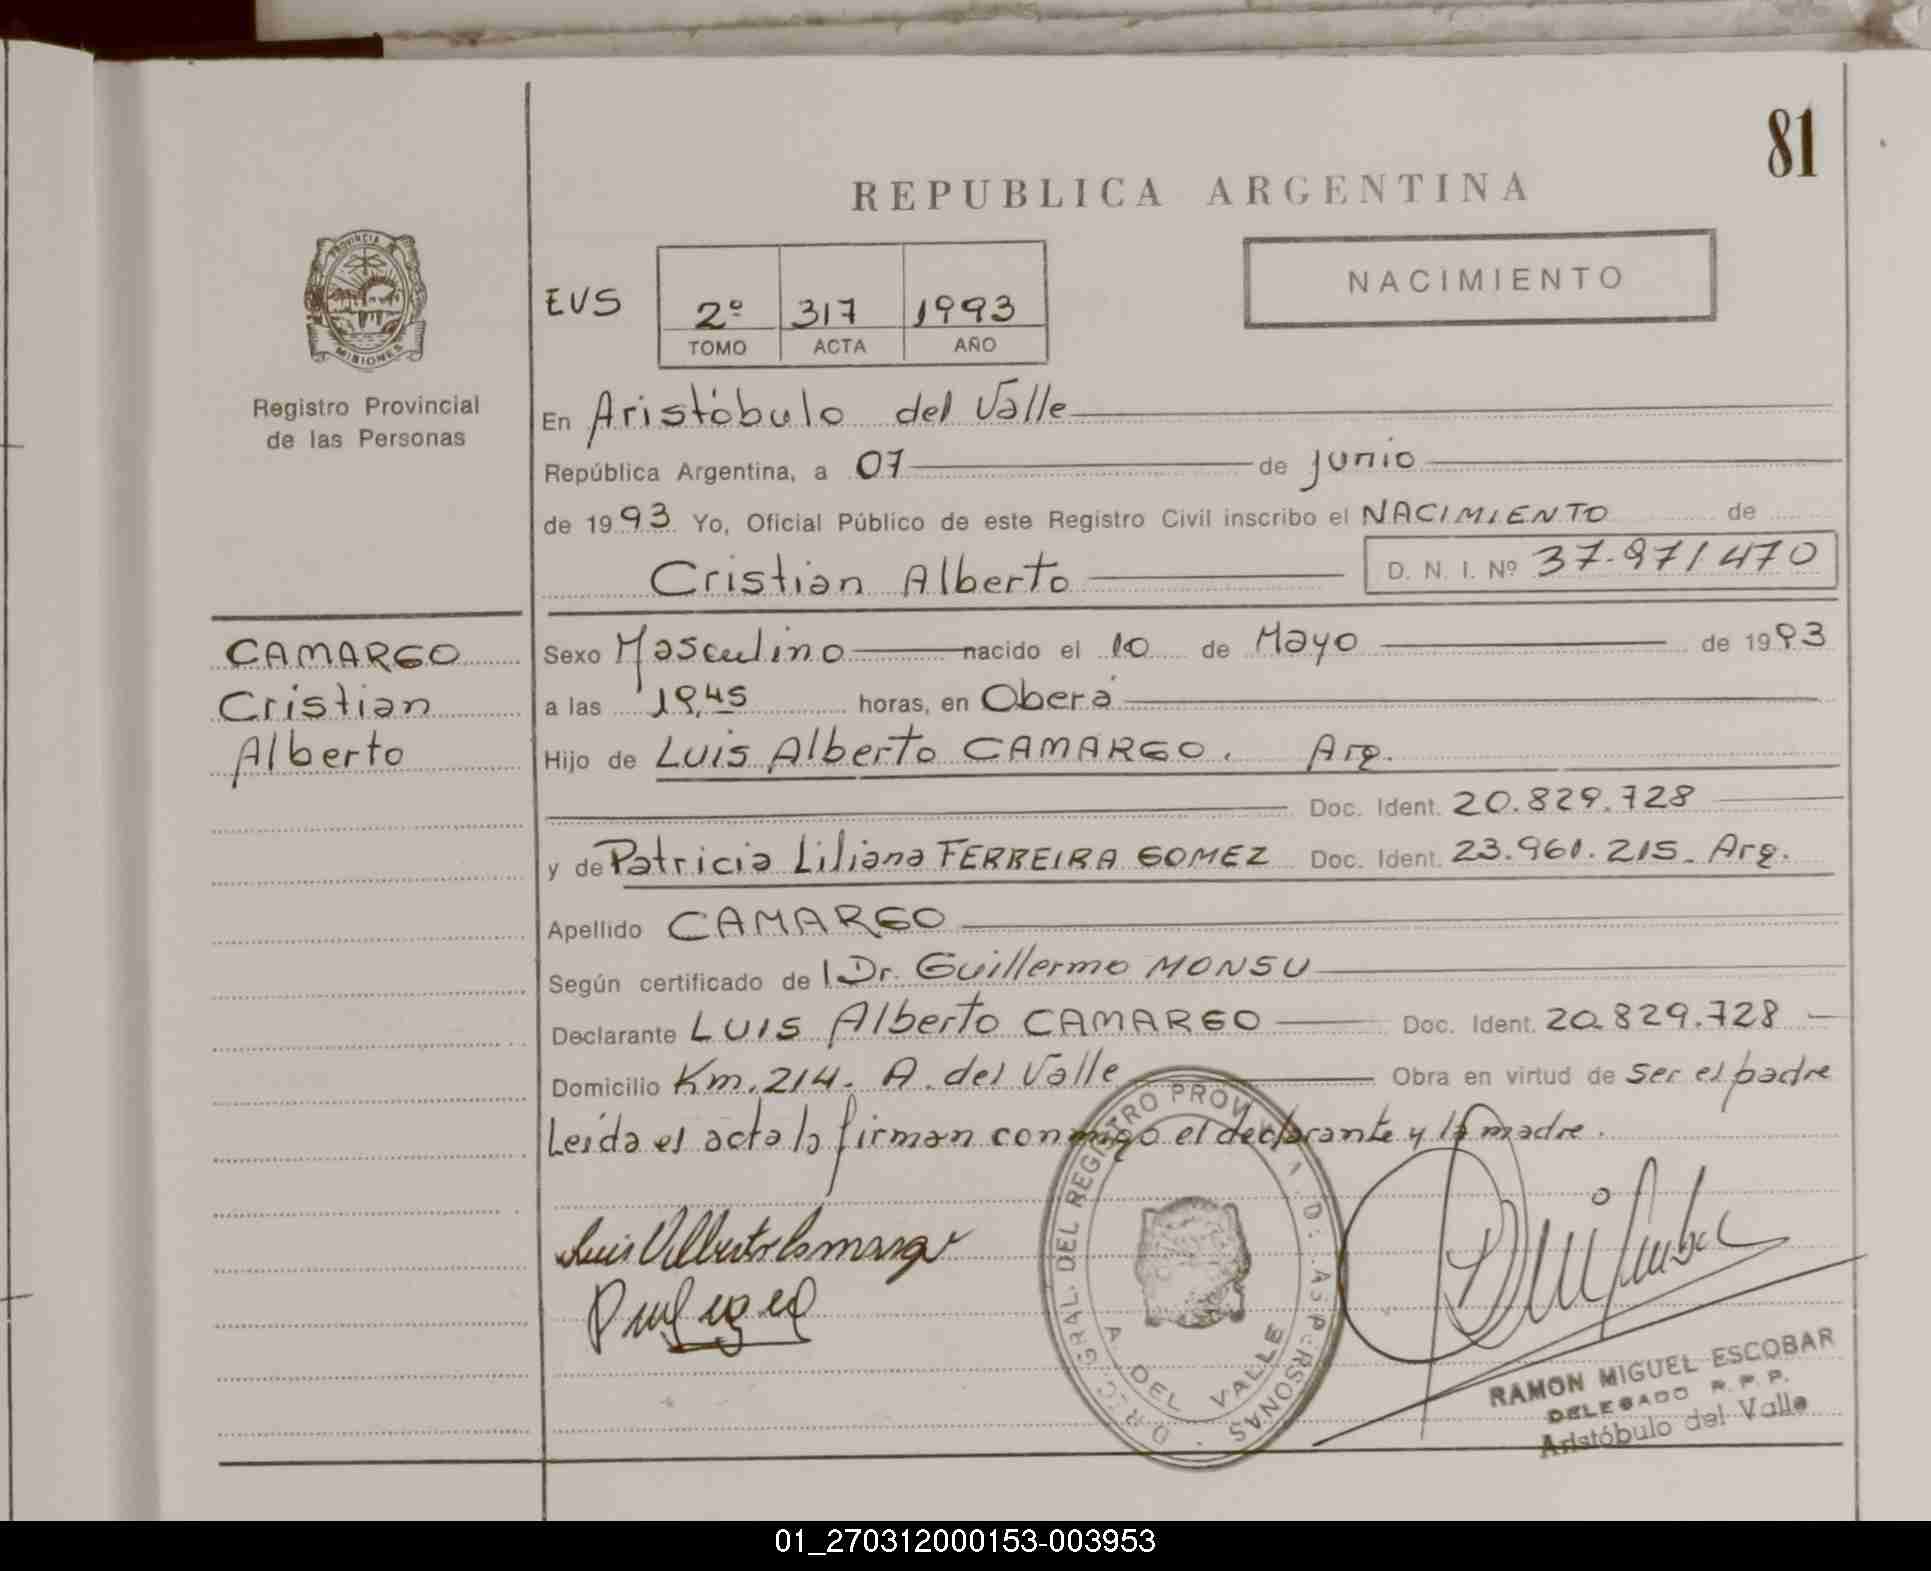 81
REPUBLICA ARGENTINA
PROVINCIA
MISIONES
Registro Provincial
de las Personas
EVS
2º 317 1993
TOMO ACTA AÑO
NACIMIENTO
En Aristóbulo del Valle
República Argentina, a 07 de junio
de 1993 Yo, Oficial Público de este Registro Civil inscribo el NACIMIENTO de
Cristian Alberto D. N. I. Nº 37.971470
CAMARGO
Cristian
Alberto
Sexo Masculino nacido el 10 de Mayo de 1993
a las 19,45 horas, en Oberá
Hijo de Luis Alberto CAMARGO. Arg.
Doc. Ident. 20.829.728
y de Patricia Liliana FERREIRA GOMEZ Doc. Ident. 23.961.215. Arg.
Apellido CAMARGO
Según certificado de Dr. Guillermo MONSU
Declarante LUIS Alberto CAMARGO Doc. Ident. 20.829.728
Domicilio Km. 214. A. del Valle Obra en virtud de ser el padre
Leída el acta la firman conmigo el declarante y la madre.
Luis Alberto Camargo
DIREC. GRAL. DEL REGISTRO PROV. D. LAS PERSONAS
A DEL VALLE
RAMON MIGUEL ESCOBAR
DELEGADO R. P. P.
Aristóbulo del Valle
01_270312000153-003953